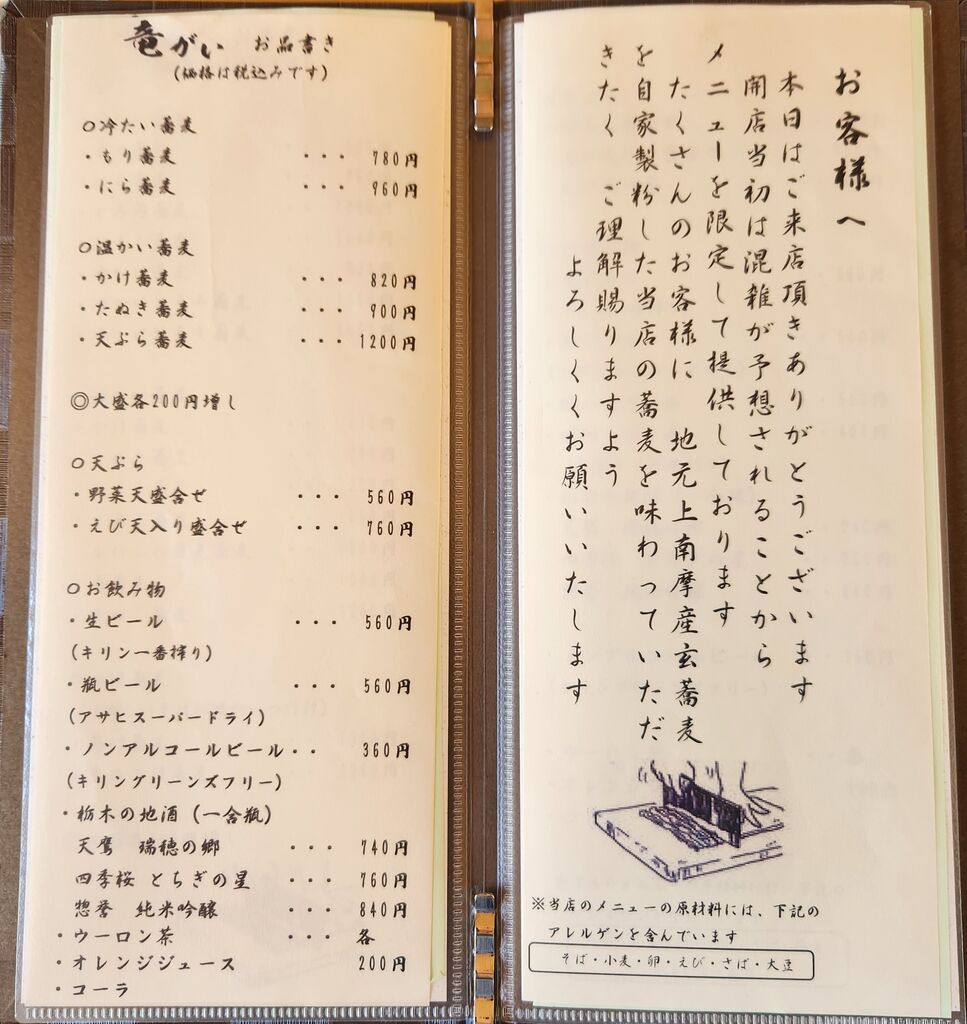 竜がい お品書き
（価格は税込みです）
〇冷たい蕎麦
・もり蕎麦 ・・・ 780円
・にら蕎麦 ・・・ 960円
〇温かい蕎麦
・かけ蕎麦 ・・・ 820円
・たぬき蕎麦 ・・・ 900円
・天ぷら蕎麦 ・・・1200円
◎大盛各200円増し
〇天ぷら
・野菜天盛合せ ・・・ 560円
・えび天入り盛合せ ・・・ 760円
〇お飲み物
・生ビール ・・・ 560円
（キリン一番搾り）
・瓶ビール ・・・ 560円
（アサヒスーパードライ）
・ノンアルコールビール・・ 360円
（キリングリーンズフリー）
・栃木の地酒（一合瓶）
天鷹 瑞穂の郷 ・・・ 740円
四季桜 とちぎの星 ・・・ 760円
惣誉 純米吟醸 ・・・ 840円
・ウーロン茶 ・・・ 各
・オレンジジュース 200円
・コーラ
お客様へ
本日はご来店頂きありがとうございます
開店当初は混雑が予想されることから
メニューを限定して提供しております
たくさんのお客様に 地元上南摩産玄蕎麦
を自家製粉した当店の蕎麦を味わっていただ
きたく ご理解賜りますよう
よろしくお願いいたします
※当店のメニューの原材料には、下記の
アレルゲンを含んでいます
そば・小麦・卵・えび・さば・大豆